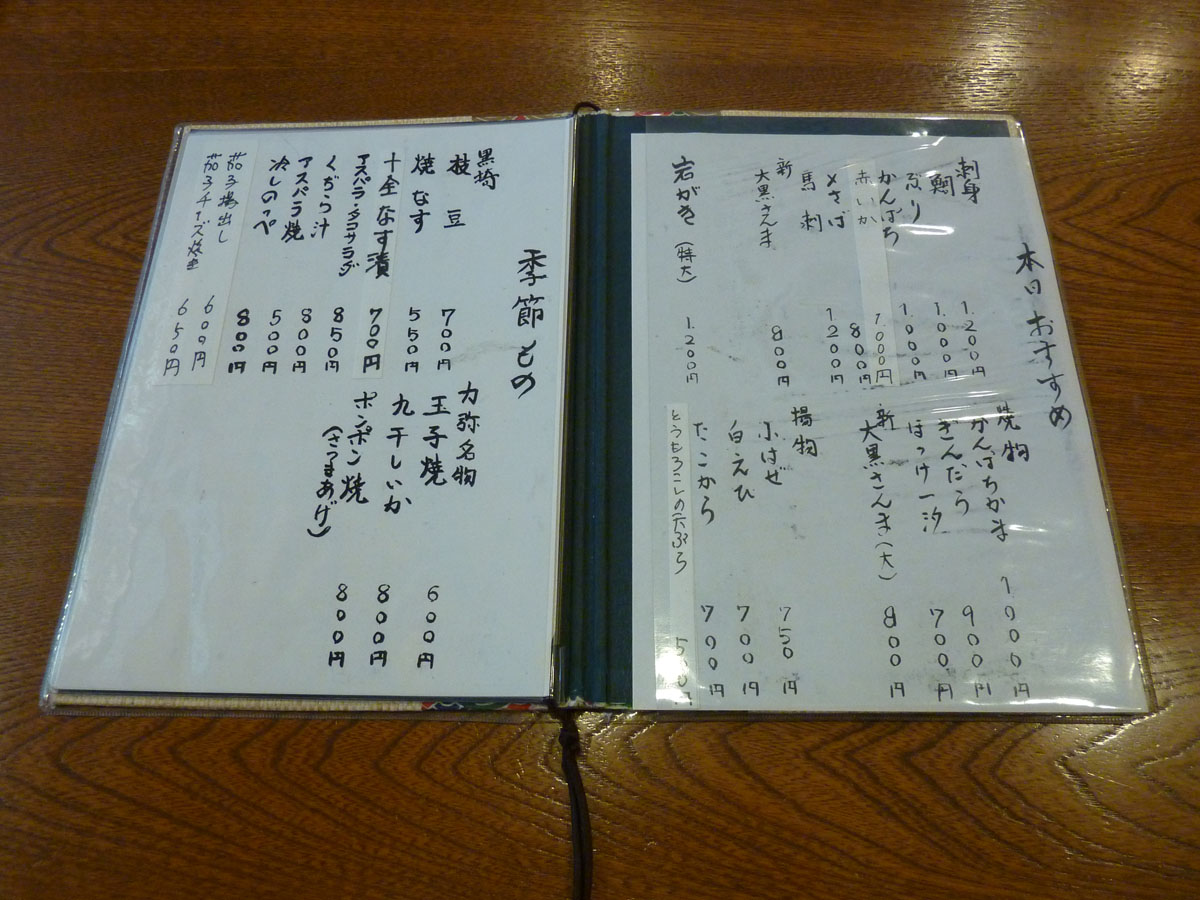 本日おすすめ
刺身
鯛 1.200円
ぶり 1.000円
かんぱち 1.000円
赤いか 1.000円
〆さば 800円
馬刺 1200円
新
大黒さんま 800円
岩がき(特大) 1.200円
焼物
かんぱちかま 1000円
ぎんだら 900円
ほっけ一汐 700円
新
大黒さんま(大) 800円
揚物
小はぜ 750円
白えび 700円
たこから 700円
とうもろこしの天ぷら 500円
季節もの
黒埼
枝豆 700円
焼なす 550円
十全なす漬 700円
アスパラ・タコサラダ 850円
くぢら汁 800円
アスパラ焼 500円
冷しのっぺ 800円
茄子揚出し 600円
茄子チーズ焼き 650円
力弥名物
玉子焼 600円
丸干しいか 800円
ポンポン焼 800円
(さつまあげ)